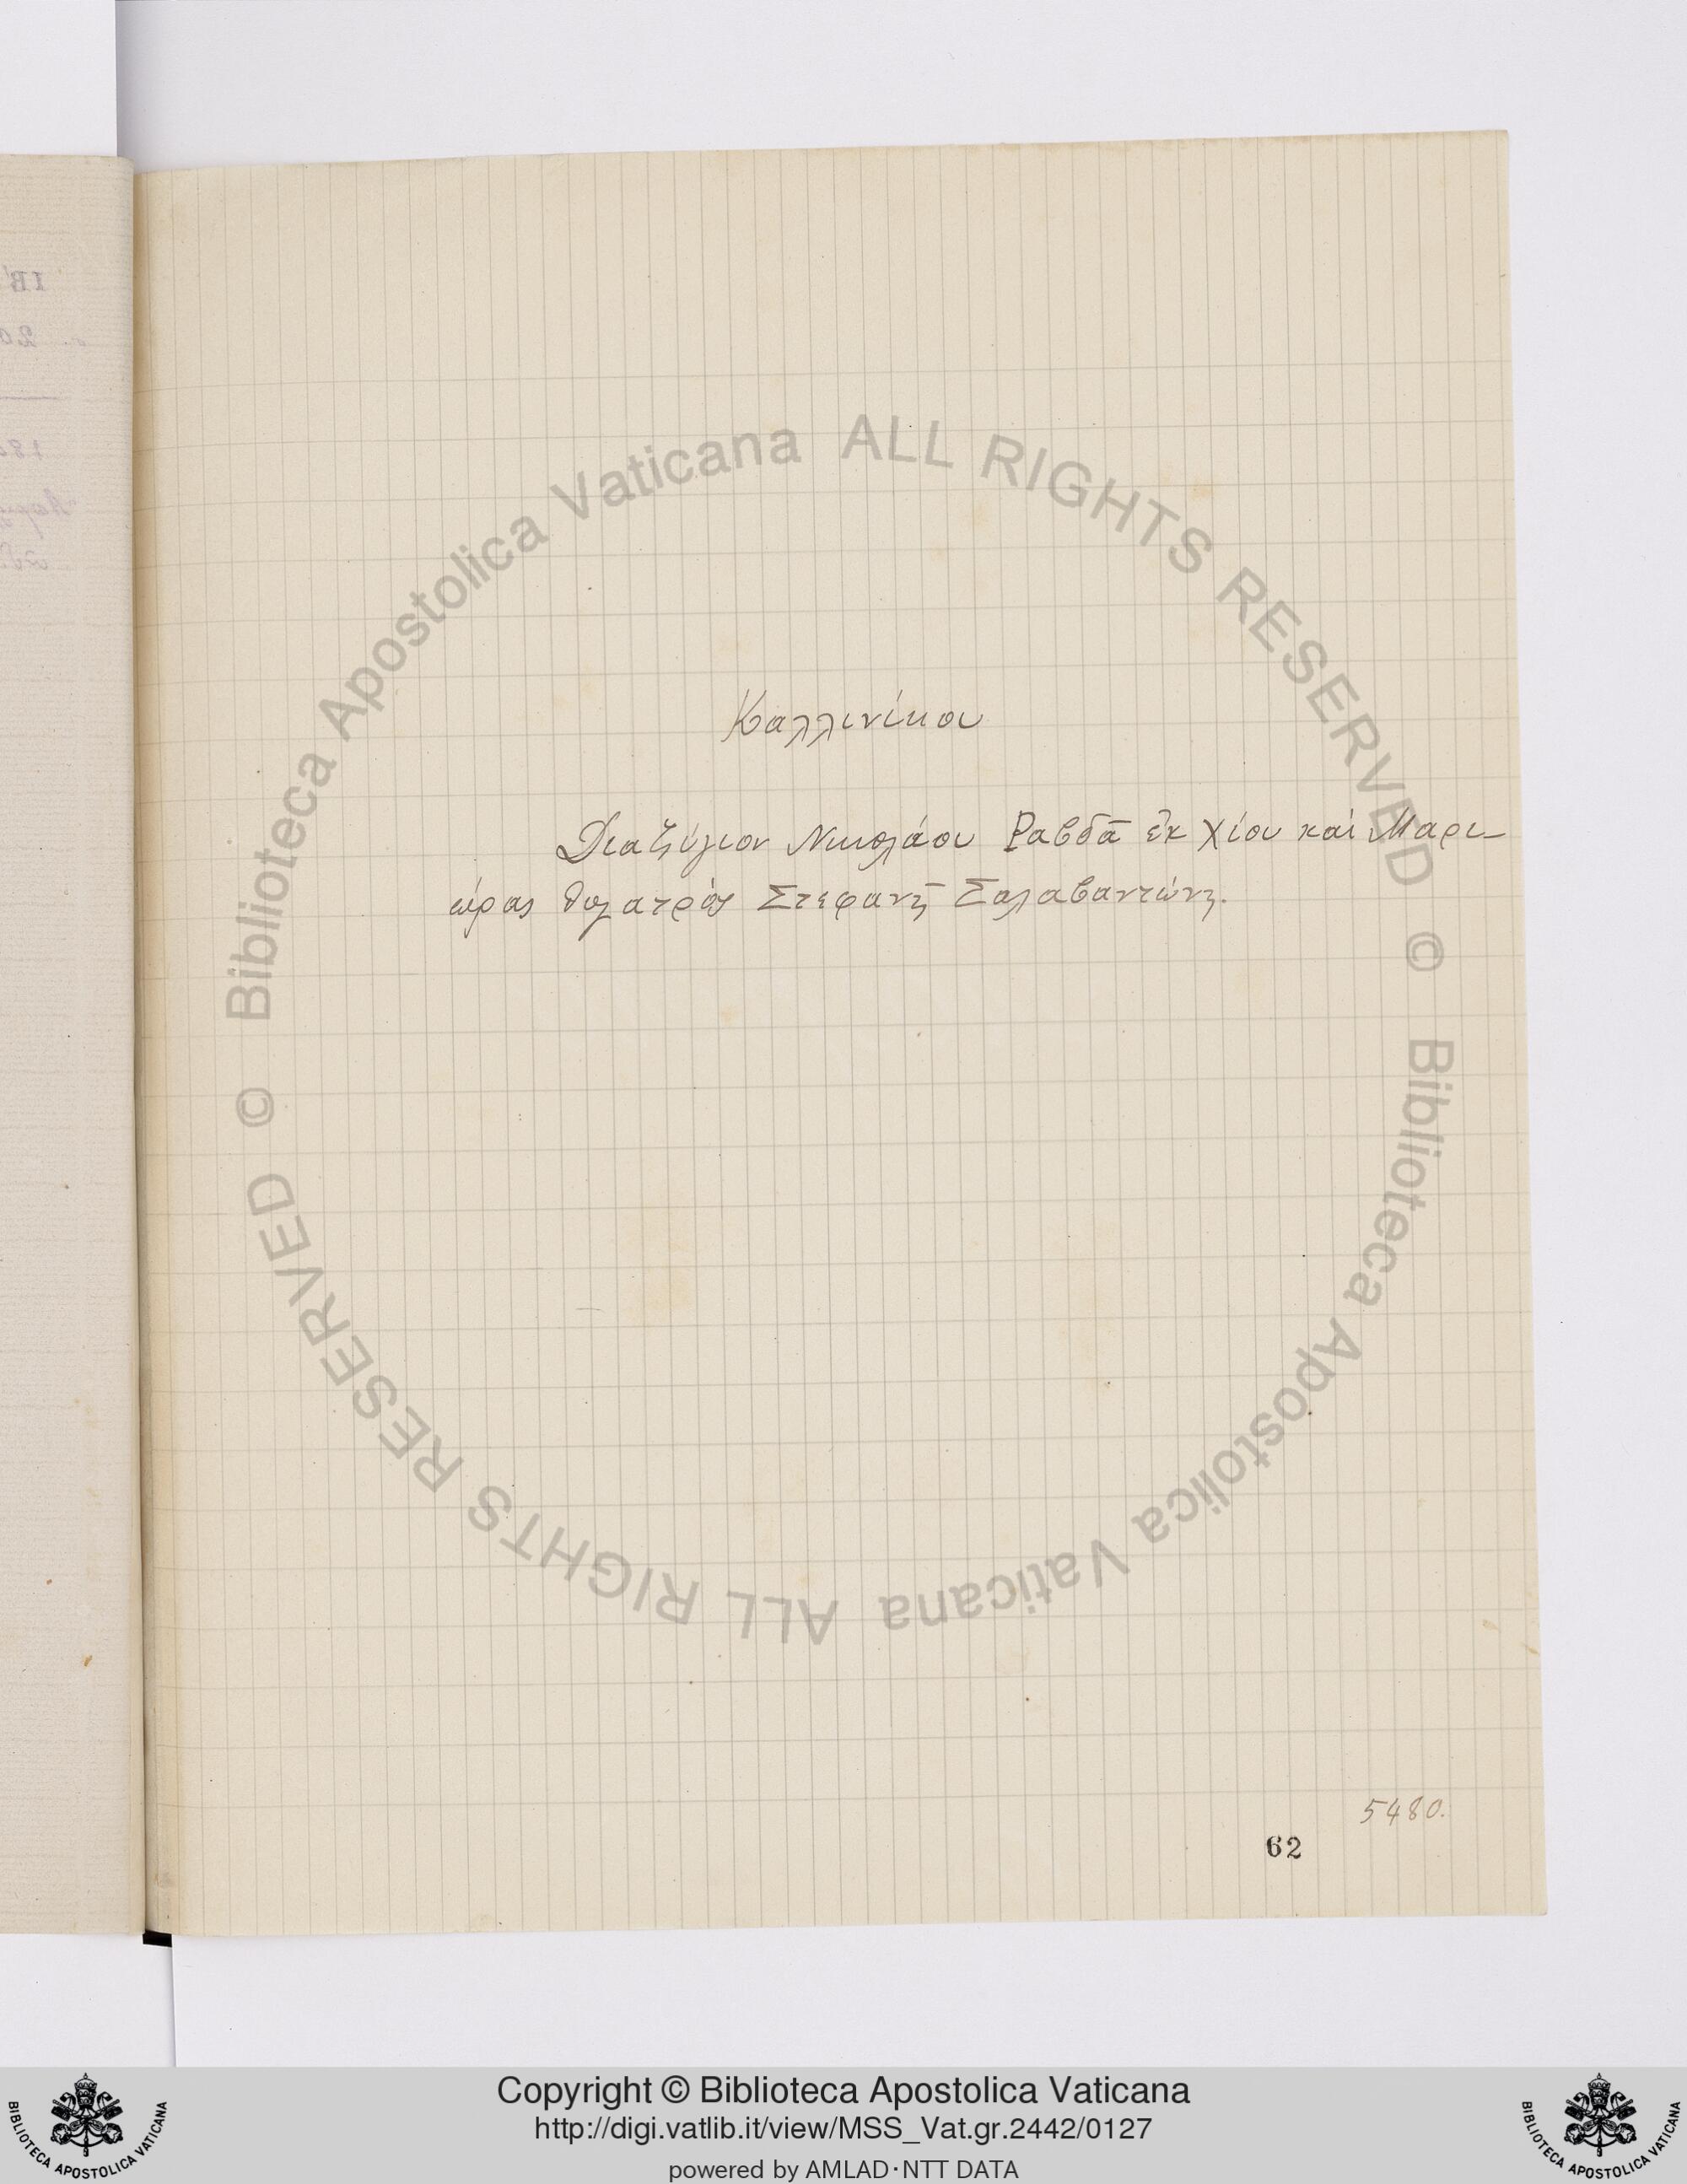 Καλλινίκου
Διαζύγιον Νικολάου Ραβδᾶ ἐκ Χίου καὶ Μαρι-
ώρας θυγατρὸς Στεφανῆ Σαλαβαντώνη.
5480.
62
© Biblioteca Apostolica Vaticana ALL RIGHTS RESERVED
© Biblioteca Apostolica Vaticana ALL RIGHTS RESERVED
Copyright © Biblioteca Apostolica Vaticana
http://digi.vatlib.it/view/MSS_Vat.gr.2442/0127
powered by AMLAD·NTT DATA
BIBLIOTECA APOSTOLICA VATICANA
BIBLIOTECA APOSTOLICA VATICANA